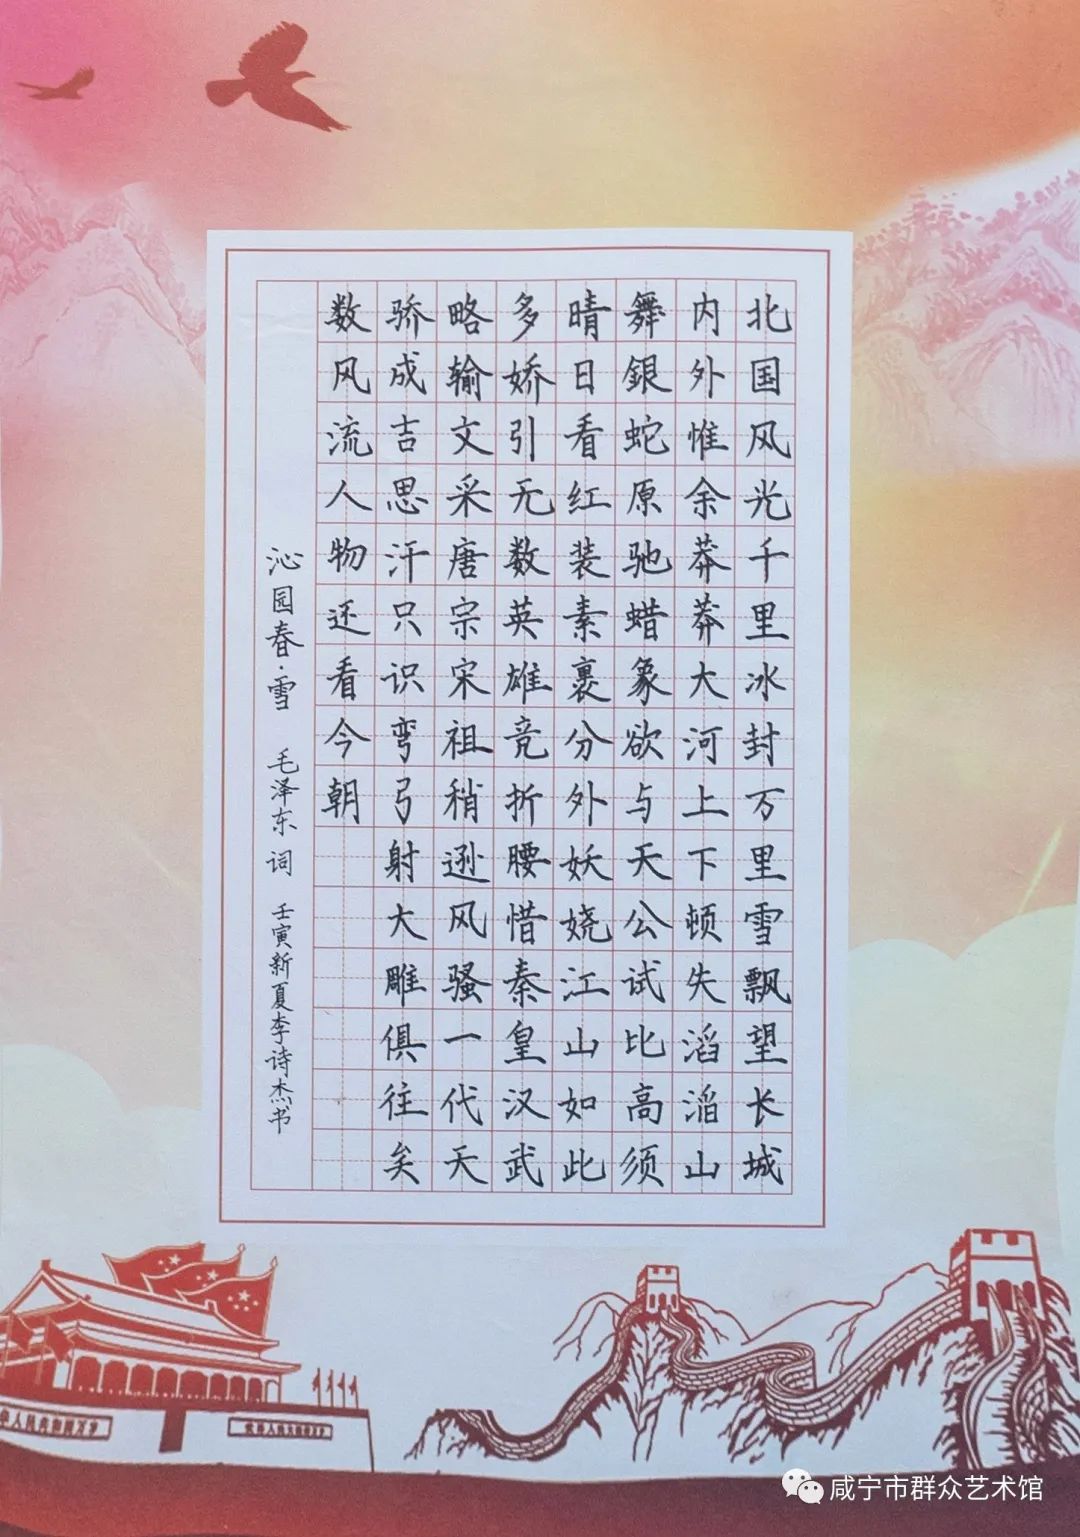 北国风光千里冰封万里雪飘望长城
内外惟余莽莽大河上下顿失滔滔山
舞銀蛇原驰蜡象欲与天公试比高须
晴日看红装素裹分外妖娆江山如此
多娇引无数英雄竞折腰惜秦皇汉武
略输文采唐宗宋祖稍逊风骚一代天
骄成吉思汗只识弯弓射大雕俱往矣
数风流人物还看今朝
沁园春·雪 毛泽东词 壬寅新夏李诗杰书
华人民共和国万岁
咸宁市群众艺术馆